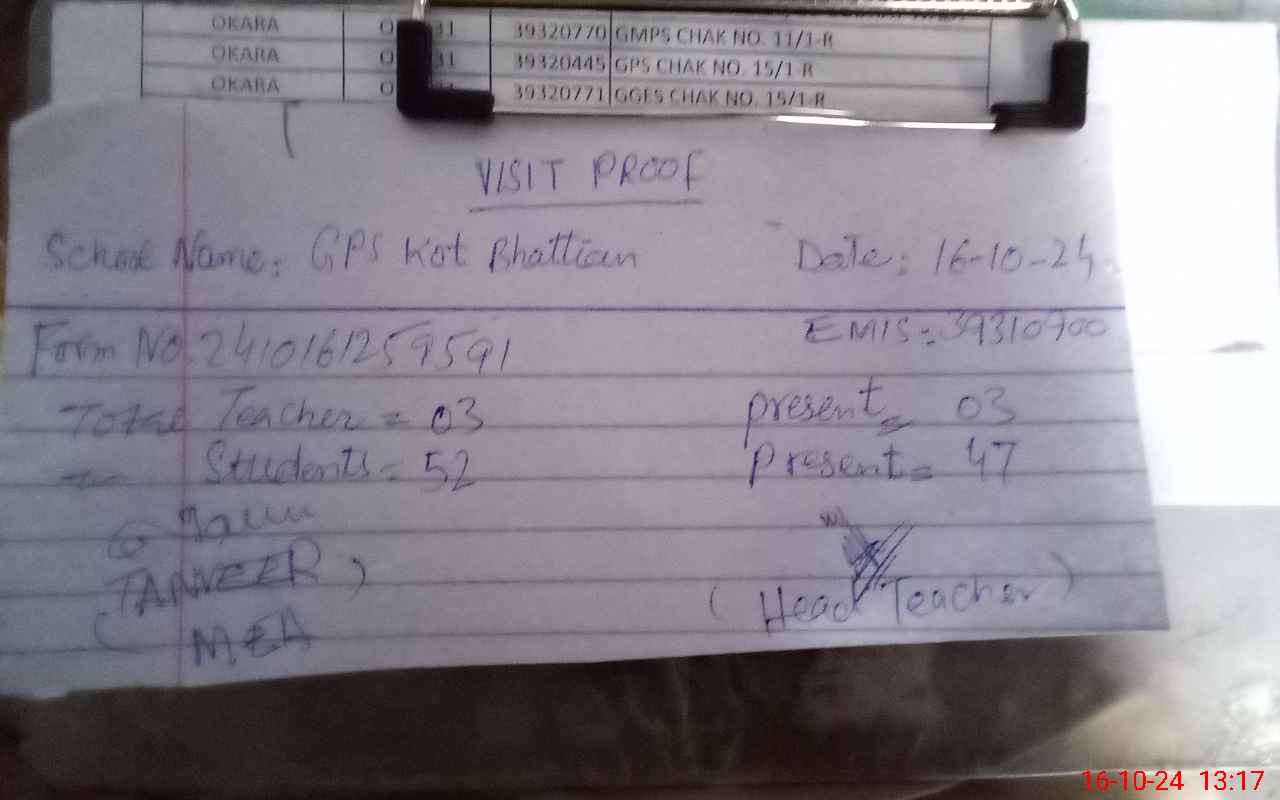 OKARA 39320770 GMPS CHAK NO. 11/1-R
OKARA 39320445 GPS CHAK NO. 15/1-R
OKARA 39320771 GGES CHAK NO. 15/1-R
VISIT PROOF
School Name: GPS Kot Bhattian Date: 16-10-24
EMIS: 39310900
Form No. 2410161259591
Total Teacher = 03 present = 03
Students = 52 Present = 47
(TANVEER)
MEA
(Head Teacher)
16-10-24 13:17